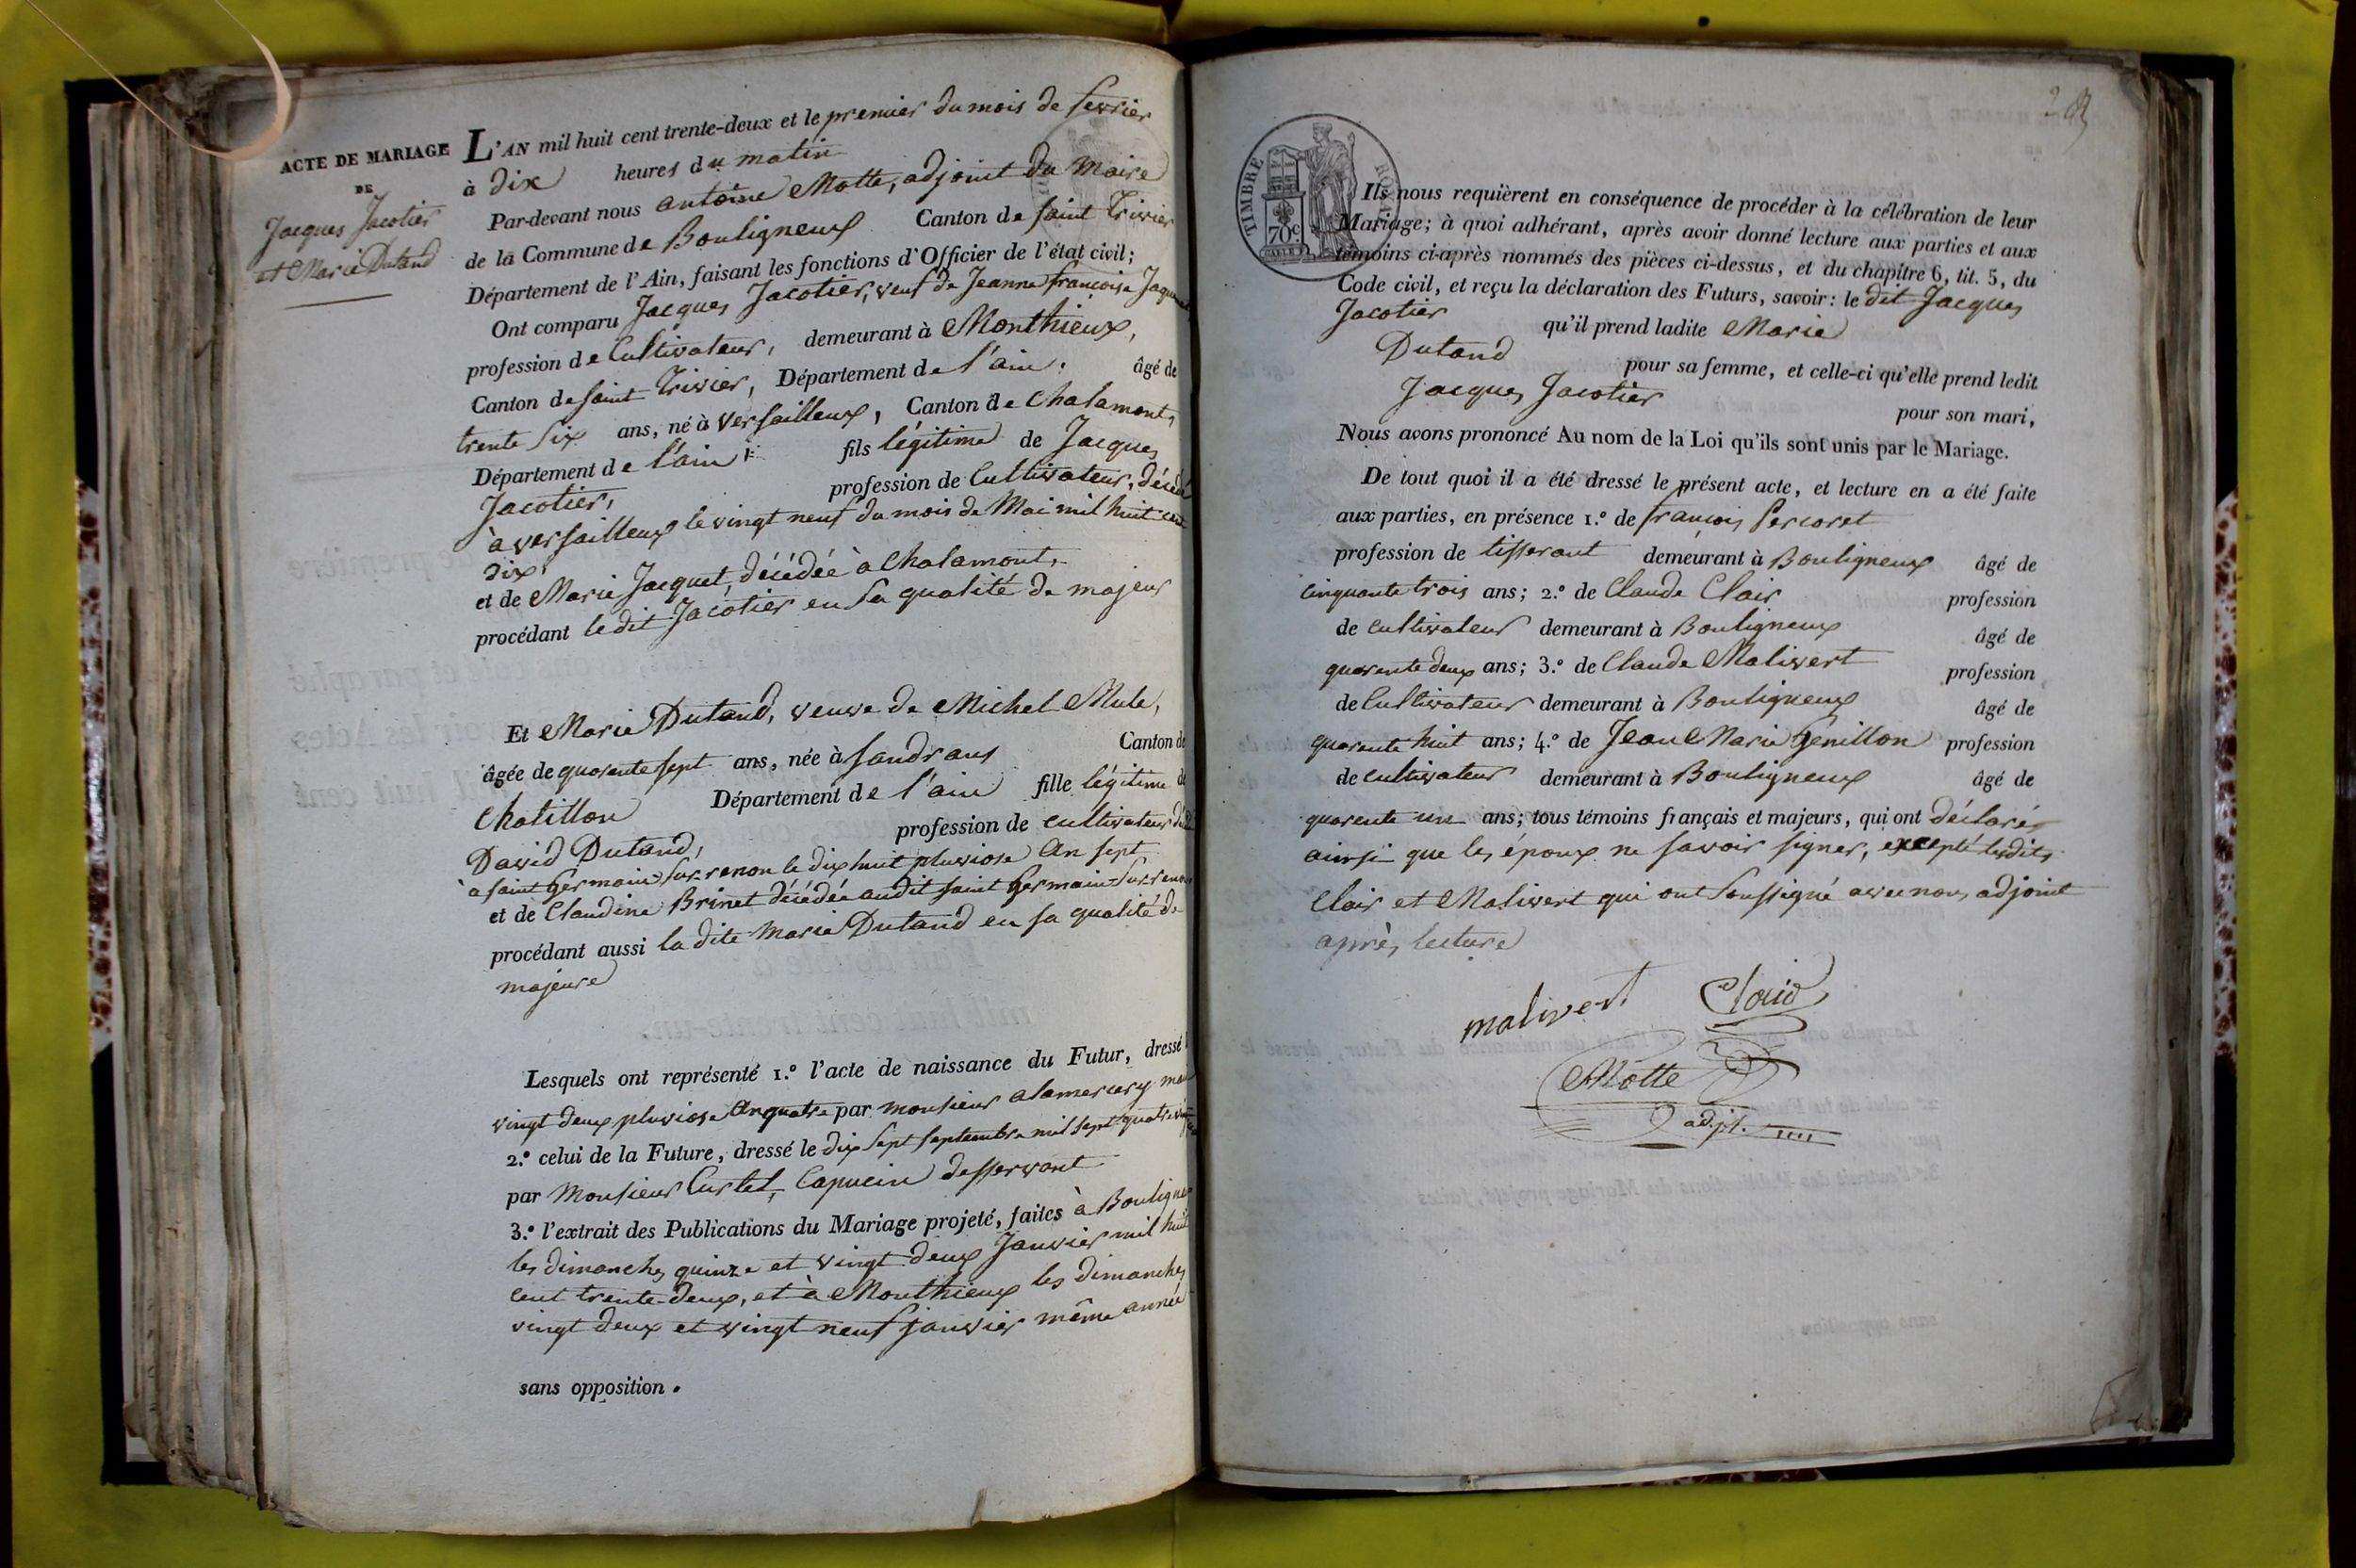 ACTE DE MARIAGE
DE
Jacques Jacotier
et Marie Dutand
L'AN mil huit cent trente-deux et le premier du mois de fevrier
à dix heures du matin
Par-devant nous antoine Motte, adjoint du Maire
de la Commune de Bouligneux Canton de saint Trivier
Département de l'Ain, faisant les fonctions d'Officier de l'état civil;
Ont comparu Jacques Jacotier, veuf de Jeanne françoise
profession de Cultivateur, demeurant à Monthieux,
Canton de saint Trivier, Département de l'ain, âgé de
trente six ans, né à Versailleux, Canton de Chalamont,
Département de l'ain fils légitime de Jacques
Jacotier, profession de Cultivateur, décédé
à versailleux le vingt neuf du mois de Mai mil huit cent
dix
et de Marie Jacquet, décédée à Chalamont,
procédant le dit Jacotier en sa qualité de majeur
Et Marie Dutand, veuve de Michel Mule,
âgée de quarente sept ans, née à sandrans Canton de
Chatillon Département de l'ain fille légitime de
David Dutand, profession de cultivateur
à saint Germain sur renon le dix huit pluviose An sept
et de Claudine Brinet décédée audit saint Germain sur renon
procédant aussi la dite Marie Dutand en sa qualité de
majeure
Lesquels ont représenté 1.º l'acte de naissance du Futur, dressé
vingt deux pluviose An quatre par monsieur alamercery
2.º celui de la Future, dressé le dix sept septembre mil sept quatre
par Monsieur Curtet, Capucin desservant
3.º l'extrait des Publications du Mariage projeté, faites à Bouligneux
les dimanches quinze et vingt deux Janvier mil huit
cent trente-deux, et à Monthieux les dimanches
vingt deux et vingt neuf janvier même année
sans opposition.
TIMBRE ROYAL
70 c
Ils nous requièrent en conséquence de procéder à la célébration de leur
Mariage; à quoi adhérant, après avoir donné lecture aux parties et aux
témoins ci-après nommés des pièces ci-dessus, et du chapitre 6, tit. 5, du
Code civil, et reçu la déclaration des Futurs, savoir: le dit Jacques
Jacotier qu'il prend ladite Marie
Dutand pour sa femme, et celle-ci qu'elle prend ledit
Jacques Jacotier pour son mari,
Nous avons prononcé Au nom de la Loi qu'ils sont unis par le Mariage.
De tout quoi il a été dressé le présent acte, et lecture en a été faite
aux parties, en présence 1.º de françois Percoret
profession de tisserant demeurant à Bouligneux âgé de
cinquante trois ans; 2.º de Claude Clair profession
de cultivateur demeurant à Bouligneux âgé de
quarente deux ans; 3.º de Claude Malivert profession
de Cultivateur demeurant à Bouligneux âgé de
quarente huit ans; 4.º de Jean Marie Genillon profession
de cultivateur demeurant à Bouligneux âgé de
quarente un ans; tous témoins français et majeurs, qui ont déclarés
ainsi que les époux ne savoir signer, excepté lesdits
Clair et Malivert qui ont soussigné avec nous adjoint
après lecture
malivert Clair
Motte
adjt.